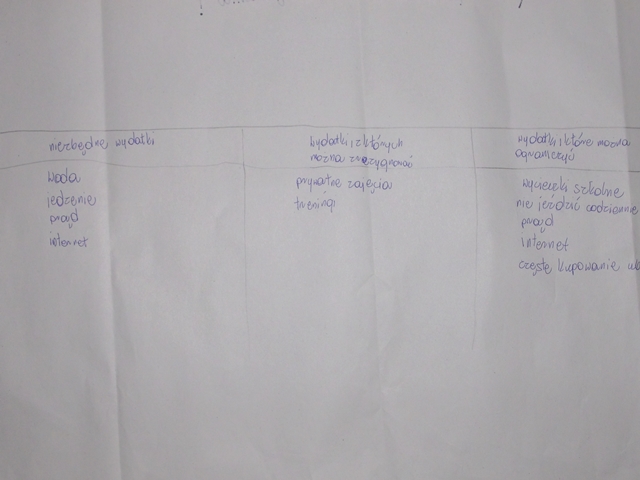 niezbędne wydatki
wydatki z których
można zrezygnować
wydatki które można
ograniczyć
woda
jedzenie
prąd
internet
prywatne zajęcia
treningi
wycieczki szkolne
nie jeździć codziennie
prąd
internet
częste kupowanie